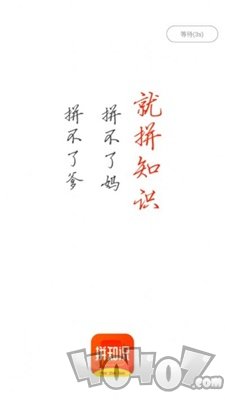 等待(3s)
就拼知识
拼不了妈
拼不了爹
拼知识
40407.com